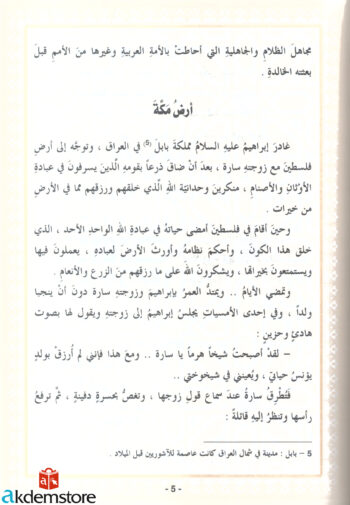 مجاهلَ الظلامِ والجاهليةِ التي أحاطتْ بالأمةِ العربيةِ وغيرها من الأممِ قبلَ
بعثته الخالدةِ .
أرضُ مكّةَ
غادرَ إبراهيمُ عليهِ السلامُ مملكةَ بابلَ (5) في العراقِ ، وتوجَّه إلى أرضِ
فلسطينَ مع زوجتهِ سارة ، بعدَ أنْ ضاقَ ذرعاً بقومهِ الَّذينَ يسرفونَ في عبادةِ
الأوثانِ والأصنامِ ، منكرينَ وحدانيّة اللهِ الَّذي خلقهم ورزقهم مما في الأرضِ
من خيرات .
وحينَ أقامَ في فلسطينَ أمضى حياتهُ في عبادةِ اللهِ الواحدِ الأحد ، الذي
خلق هذا الكونَ ، وأحكمَ نظامهُ وأورثَ الأرضَ لعباده ، يعملونَ فيها
ويستمتعونَ بخيراتها ، ويشكرونَ اللهَ على ما رزقهم من الزرعِ والأنعام .
وتمضي الأيامُ .. ويمتدُّ العمرُ بإبراهيمَ وزوجتهِ سارة دونَ أنْ ينجبا
ولداً ، وفي إحدى الأمسياتِ يجلسُ إبراهيمُ إلى زوجتهِ ويقول لها بصوت
هادئٍ وحزينٍ :
– لقدْ أصبحتُ شيخاً هرماً يا سارة .. ومعَ هذا فإنني لم أُرزقْ بولدٍ
يؤنسُ حياتي ، ويُعينني في شيخوختي ..
فَتُطْرِقُ سارةُ عندَ سماعِ قولِ زوجها ، وتغصُّ بحسرةٍ دفينةٍ ، ثمَّ ترفعُ
رأسها وتنظرُ إليهِ قائلةً :
5 – بابل : مدينة في شمال العراق كانت عاصمة للآشوريين قبل الميلاد .
- 5 -
akdemstore